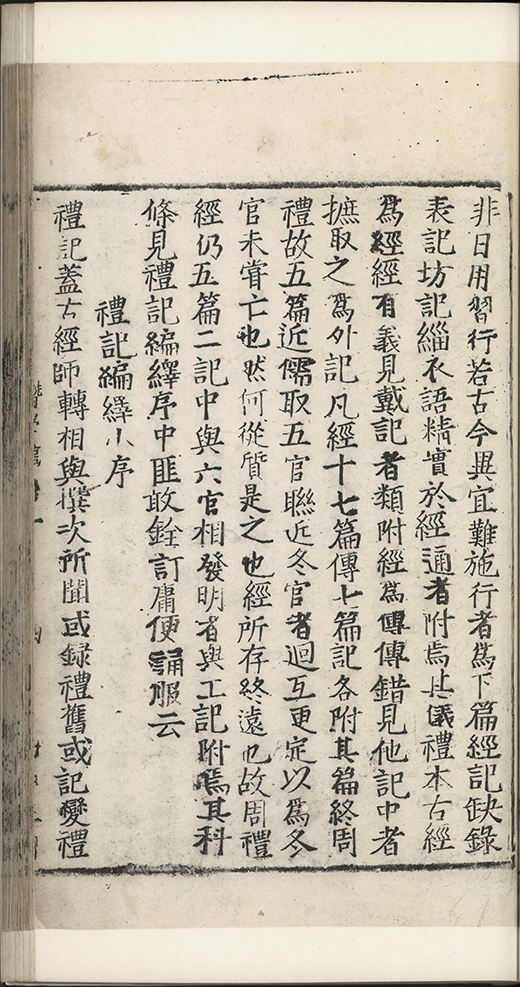 非日用習行若古今異宜難施行者爲下篇經記缺錄
表記坊記緇衣語精實於經通者附焉其儀禮本古經
爲經經有義見戴記者類附經爲傳傳錯見他記中者
摭取之爲外記凡經十七篇傳七篇記各附其篇終周
禮故五篇近儒取五官聯近冬官者迴互更定以爲冬
官未嘗亡也然何從質是之也經所存終遠也故周禮
經仍五篇二記中與六官相發明者與工記附焉其科
條見禮記編繹序中匪敢銓訂庸便誦服云
禮記編繹小序
禮記蓋古經師轉相與撰次所聞或錄禮舊或記變禮